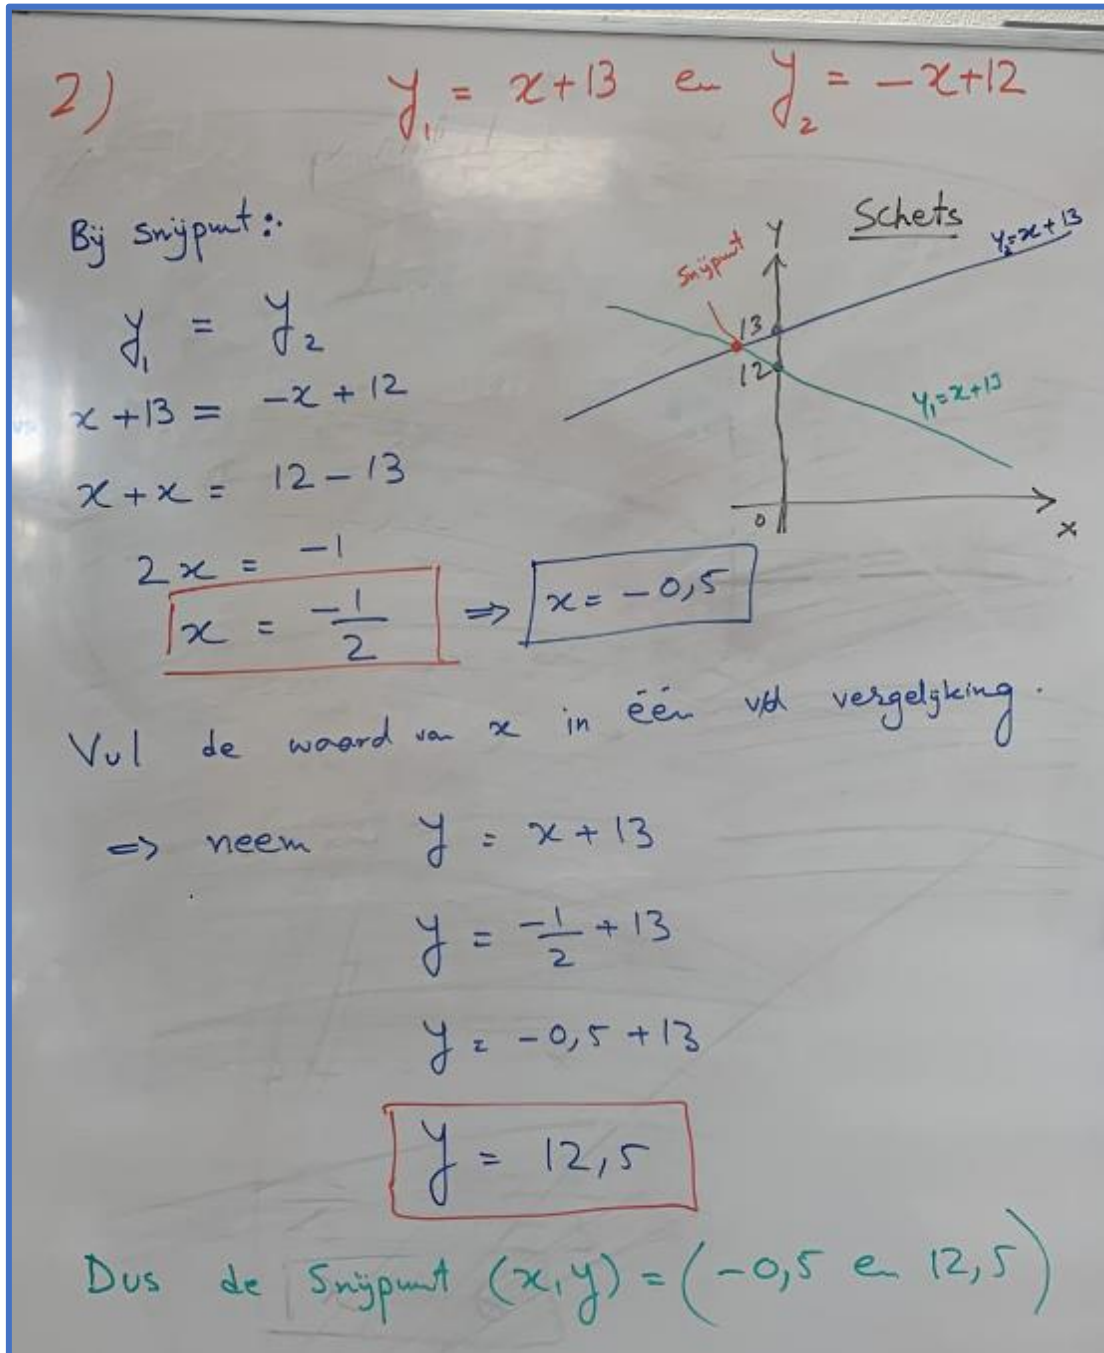 2) y₁ = x+13 en y₂ = -x+12
Bij snijpunt:
y₁ = y₂
x+13 = -x+12
x+x = 12-13
2x = -1
x = -1/2 => x = -0,5
Schets
Y
y₂=x+13
Snijpunt
13
12
y₁=x+13
0
x
Vul de waard van x in één v/d vergelijking.
=> neem y = x+13
y = -1/2 + 13
y = -0,5 + 13
y = 12,5
Dus de Snijpunt (x,y) = (-0,5 en 12,5)